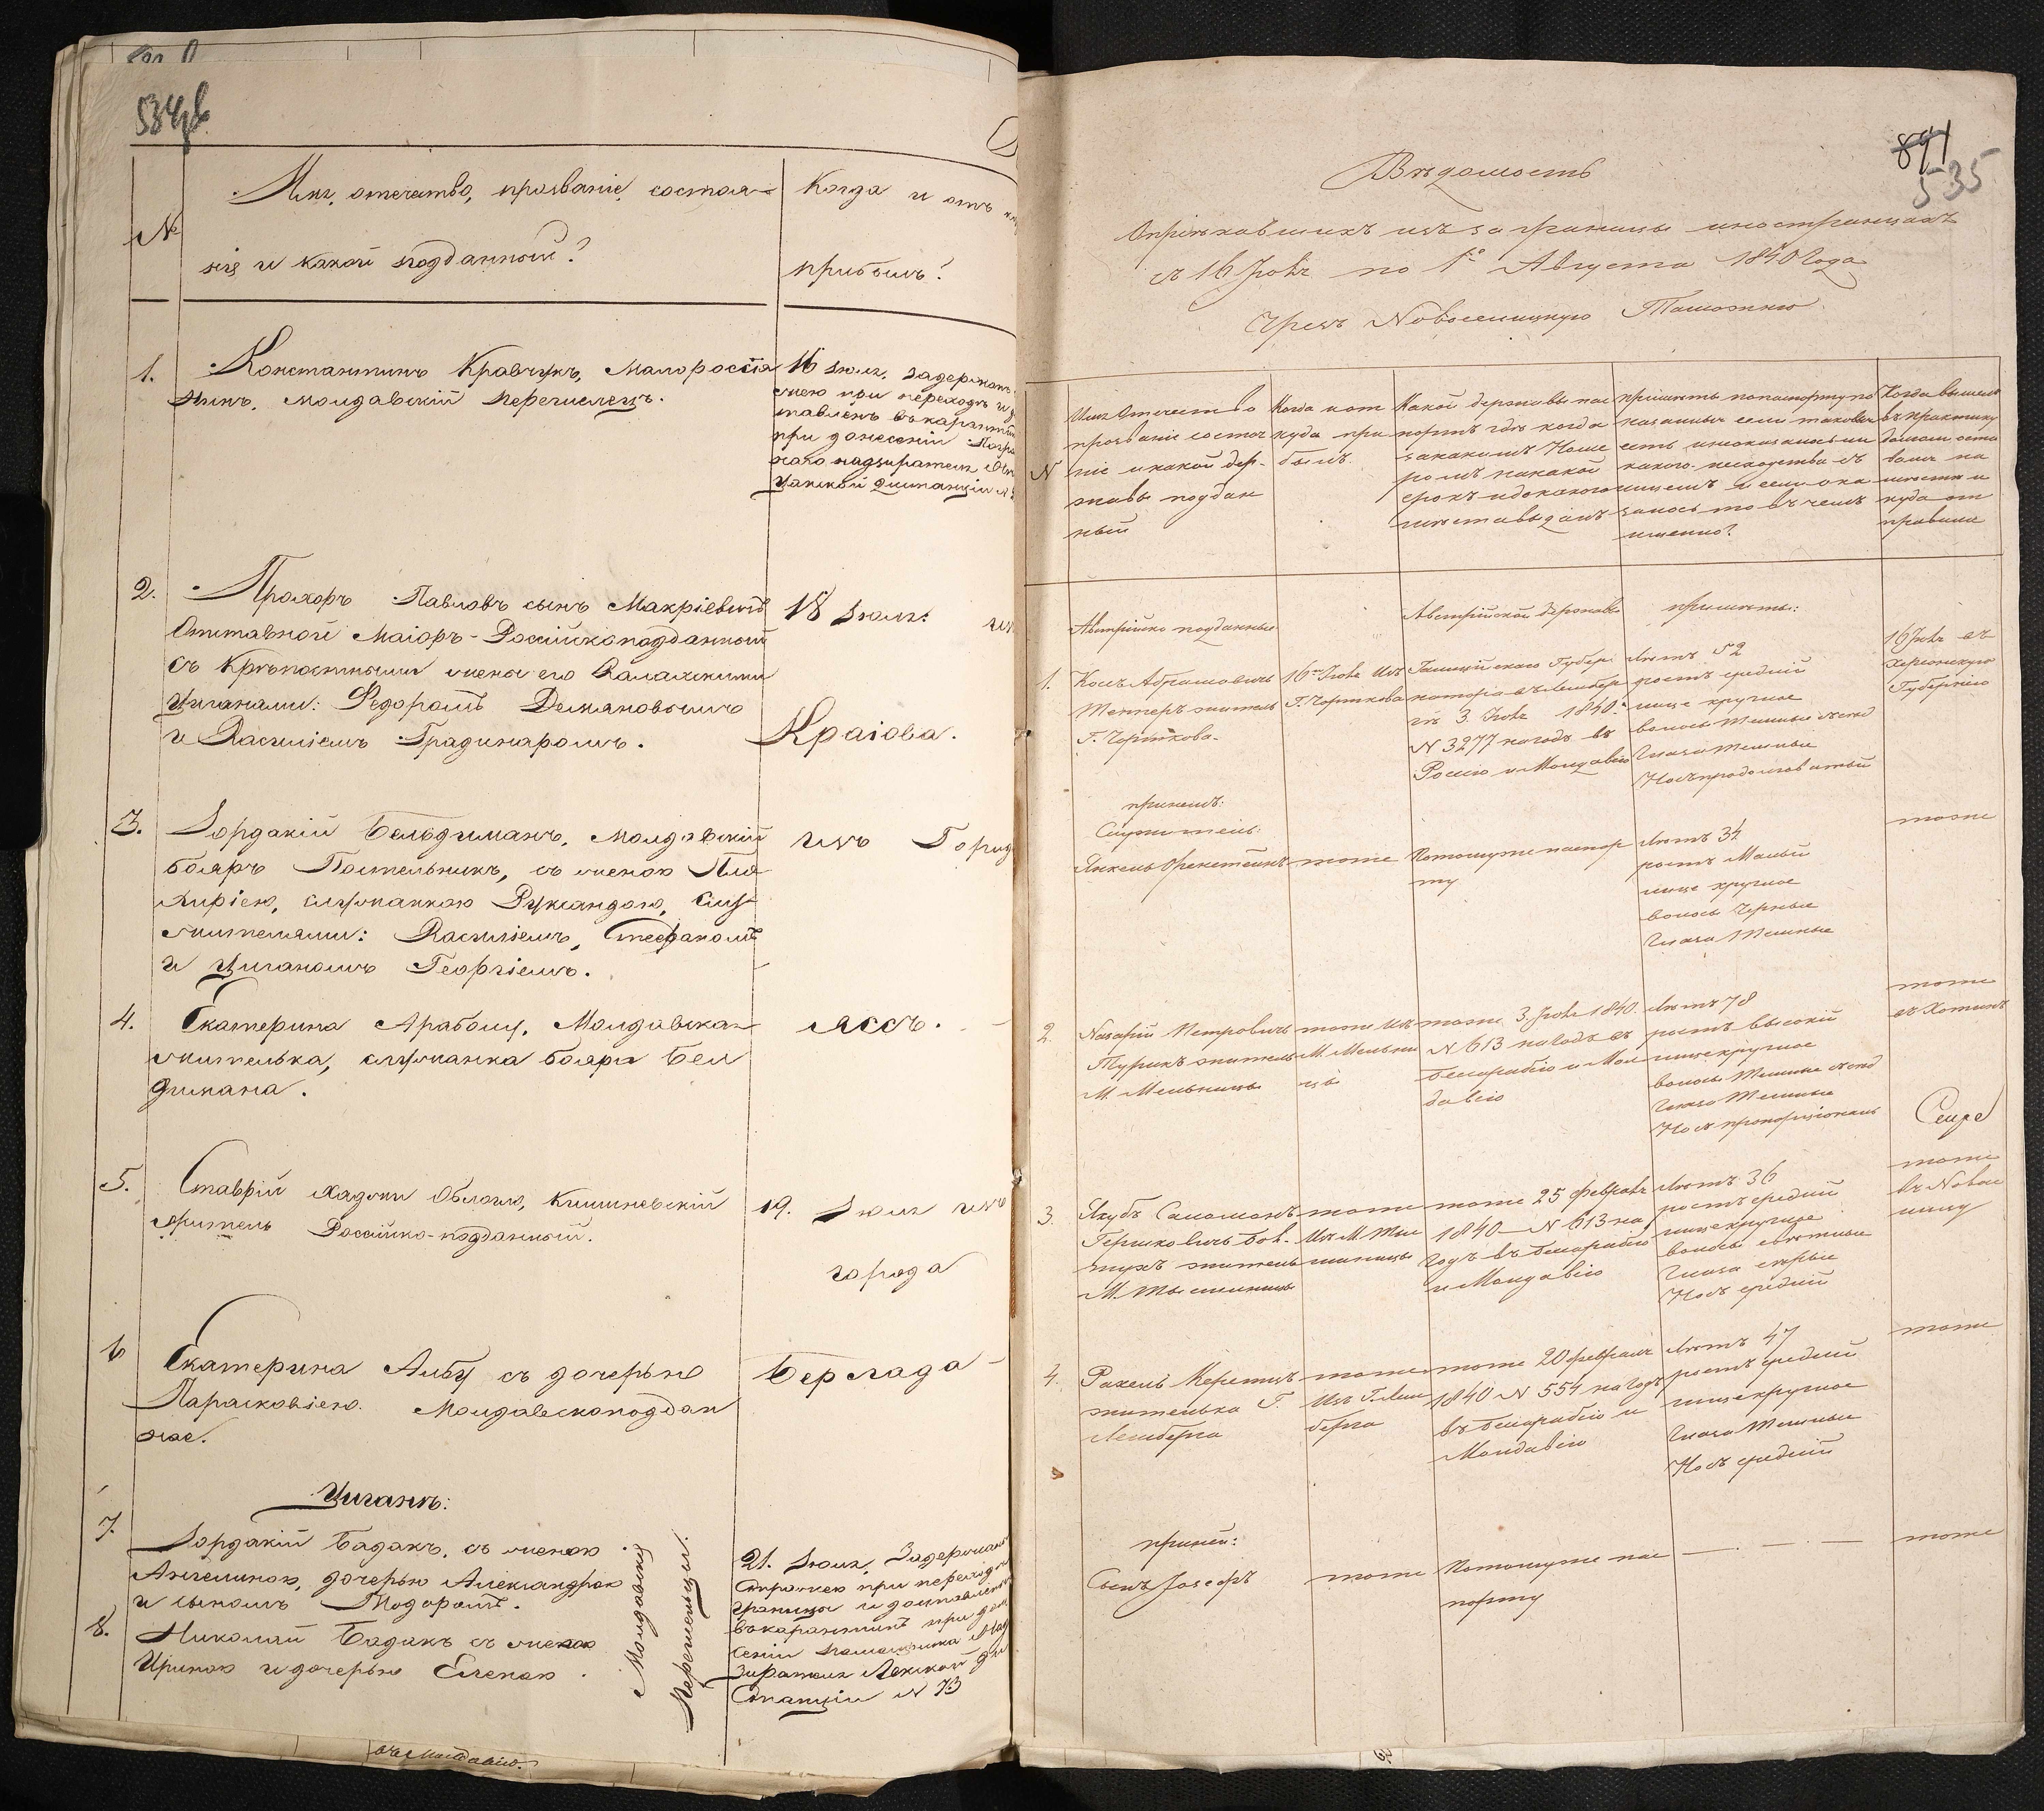 534об
№
Имя, отечество, прозваніе, состоя-
ніе и какой подданный?
Когда и отъ
прибылъ?
1.
Константинъ Кравчукъ, Малороссія
нинъ, молдавскій перечислецъ.
16 Іюля, задержанъ
при переходѣ
ставленъ въ карантинъ
при донесеніи
надзирателя
2.
Прохоръ Павловъ сынъ Макріевичъ
Отставной Маіоръ - Россійскоподданный
съ крѣпостными его Валахскими
Цыганами: Федоромъ Демяновымъ
и Василіемъ Градинаромъ.
18 Іюля:
Краіова.
3.
Іордакій Бельдиманъ, молдавскій
бояръ Постельникъ, съ женою
служанкою Руксандою, слу-
жителями: Василіемъ, Стефаномъ
и Цыганомъ Георгіемъ.
изъ
4.
Екатерина Арабоцу, Молдавская
жителька, служанка бояра Бел
димана.
Яссъ.
5.
Ставрій Хаджи Облога, Кишиневскій
житель Россійско-подданный.
19. Іюля изъ
города
6
Екатерина Албу съ дочерью
Парасковіею. Молдавскоподдан
ные.
Берлада
Цыгане:
7.
Іордакій Бадакъ, съ женою
Ангелиною, дочерью Александрою
и сыномъ Тодоромъ.
8.
Николай Бадакъ съ женою
Ириною и дочерью Еленою.
Молдавскіе
21. Іюля, Задержаны
стражею при переходѣ
границы и доставлены
въ карантинъ при
станціи № 73
въ Молдавію.
891
535
Вѣдомость
О пріѣхавшихъ изъ за границы иностранцахъ
съ 16 Іюля по 1е Августа 1840 Года
Чрезъ Новоселицкую Таможню
N
Имя Отечество
прозваніе состоя
ніе и какой дер-
жавы поддан
ный
Когда и от
куда при
былъ.
Какой державы пас
портъ гдѣ когда
за какимъ Номе
ромъ на какой
срокъ и до какого
мѣста выданъ
примѣты по паспорту по
казанныя если таковыя
есть и не оказалось ли
какого несходства съ
лицемъ и если ока
залось то въ чемъ
именно?
Когда вышелъ
въ практику
дозволен оста
вался на
мѣстѣ и
куда от
правился
Австрійско подданные
Австрійской державы
примѣты:
1.
Кось Абрамовичъ
Теннеръ житель
Г. Чорткова-
16го Іюля Изъ
Г. Чорткова
Галиційскаго Губер
натора въ Лембер
гѣ 3. Іюля 1840.
N 3277 на годъ въ
Россію и Молдавію
Лѣтъ 52
ростъ средній
лице круглое
волосы темные
Глаза темные
Носъ продолговатый
16 Іюля въ
Херсонскую
Губернію
при немъ:
Служитель:
тоже
По томуже паспор
ту
Лѣтъ 34
ростъ Малый
лице круглое
волосы Черные
Глаза темные
тоже
2.
Назарій Петровичъ
Турикъ житель
М. Мельницы
тоже изъ
М. Мельни
цы
тоже 3. Іюля 1840.
N 613 на годъ въ
Бессарабію и Мол
давію
Лѣтъ 78
ростъ высокій
лице круглое
волосы темные
Глаза темные
Носъ пропорціональ
тоже
въ Хотинъ
3.
Якубъ Саломонъ
Гершковичъ
житель
М. Тысменицы
тоже
Изъ М. Тыс
меницы
тоже 25 февраля
1840 N 613 на
годъ въ Бессарабію
и Молдавію
Лѣтъ 36
ростъ средній
лице круглое
волосы свѣтлые
Глаза сѣрые
Носъ средній
тоже
въ Новосе
лицу
4.
Рахель
жителька Г.
Лемберга
тоже
Изъ Г. Лем
берга
тоже 20 февраля
1840 N 554 на годъ
въ Бессарабію и
Молдавію
Лѣтъ 47
ростъ средній
лице круглое
Глаза темные
Носъ средній
тоже
при ней:
Сынъ Јосефъ
тоже
По томуже пас
порту
тоже